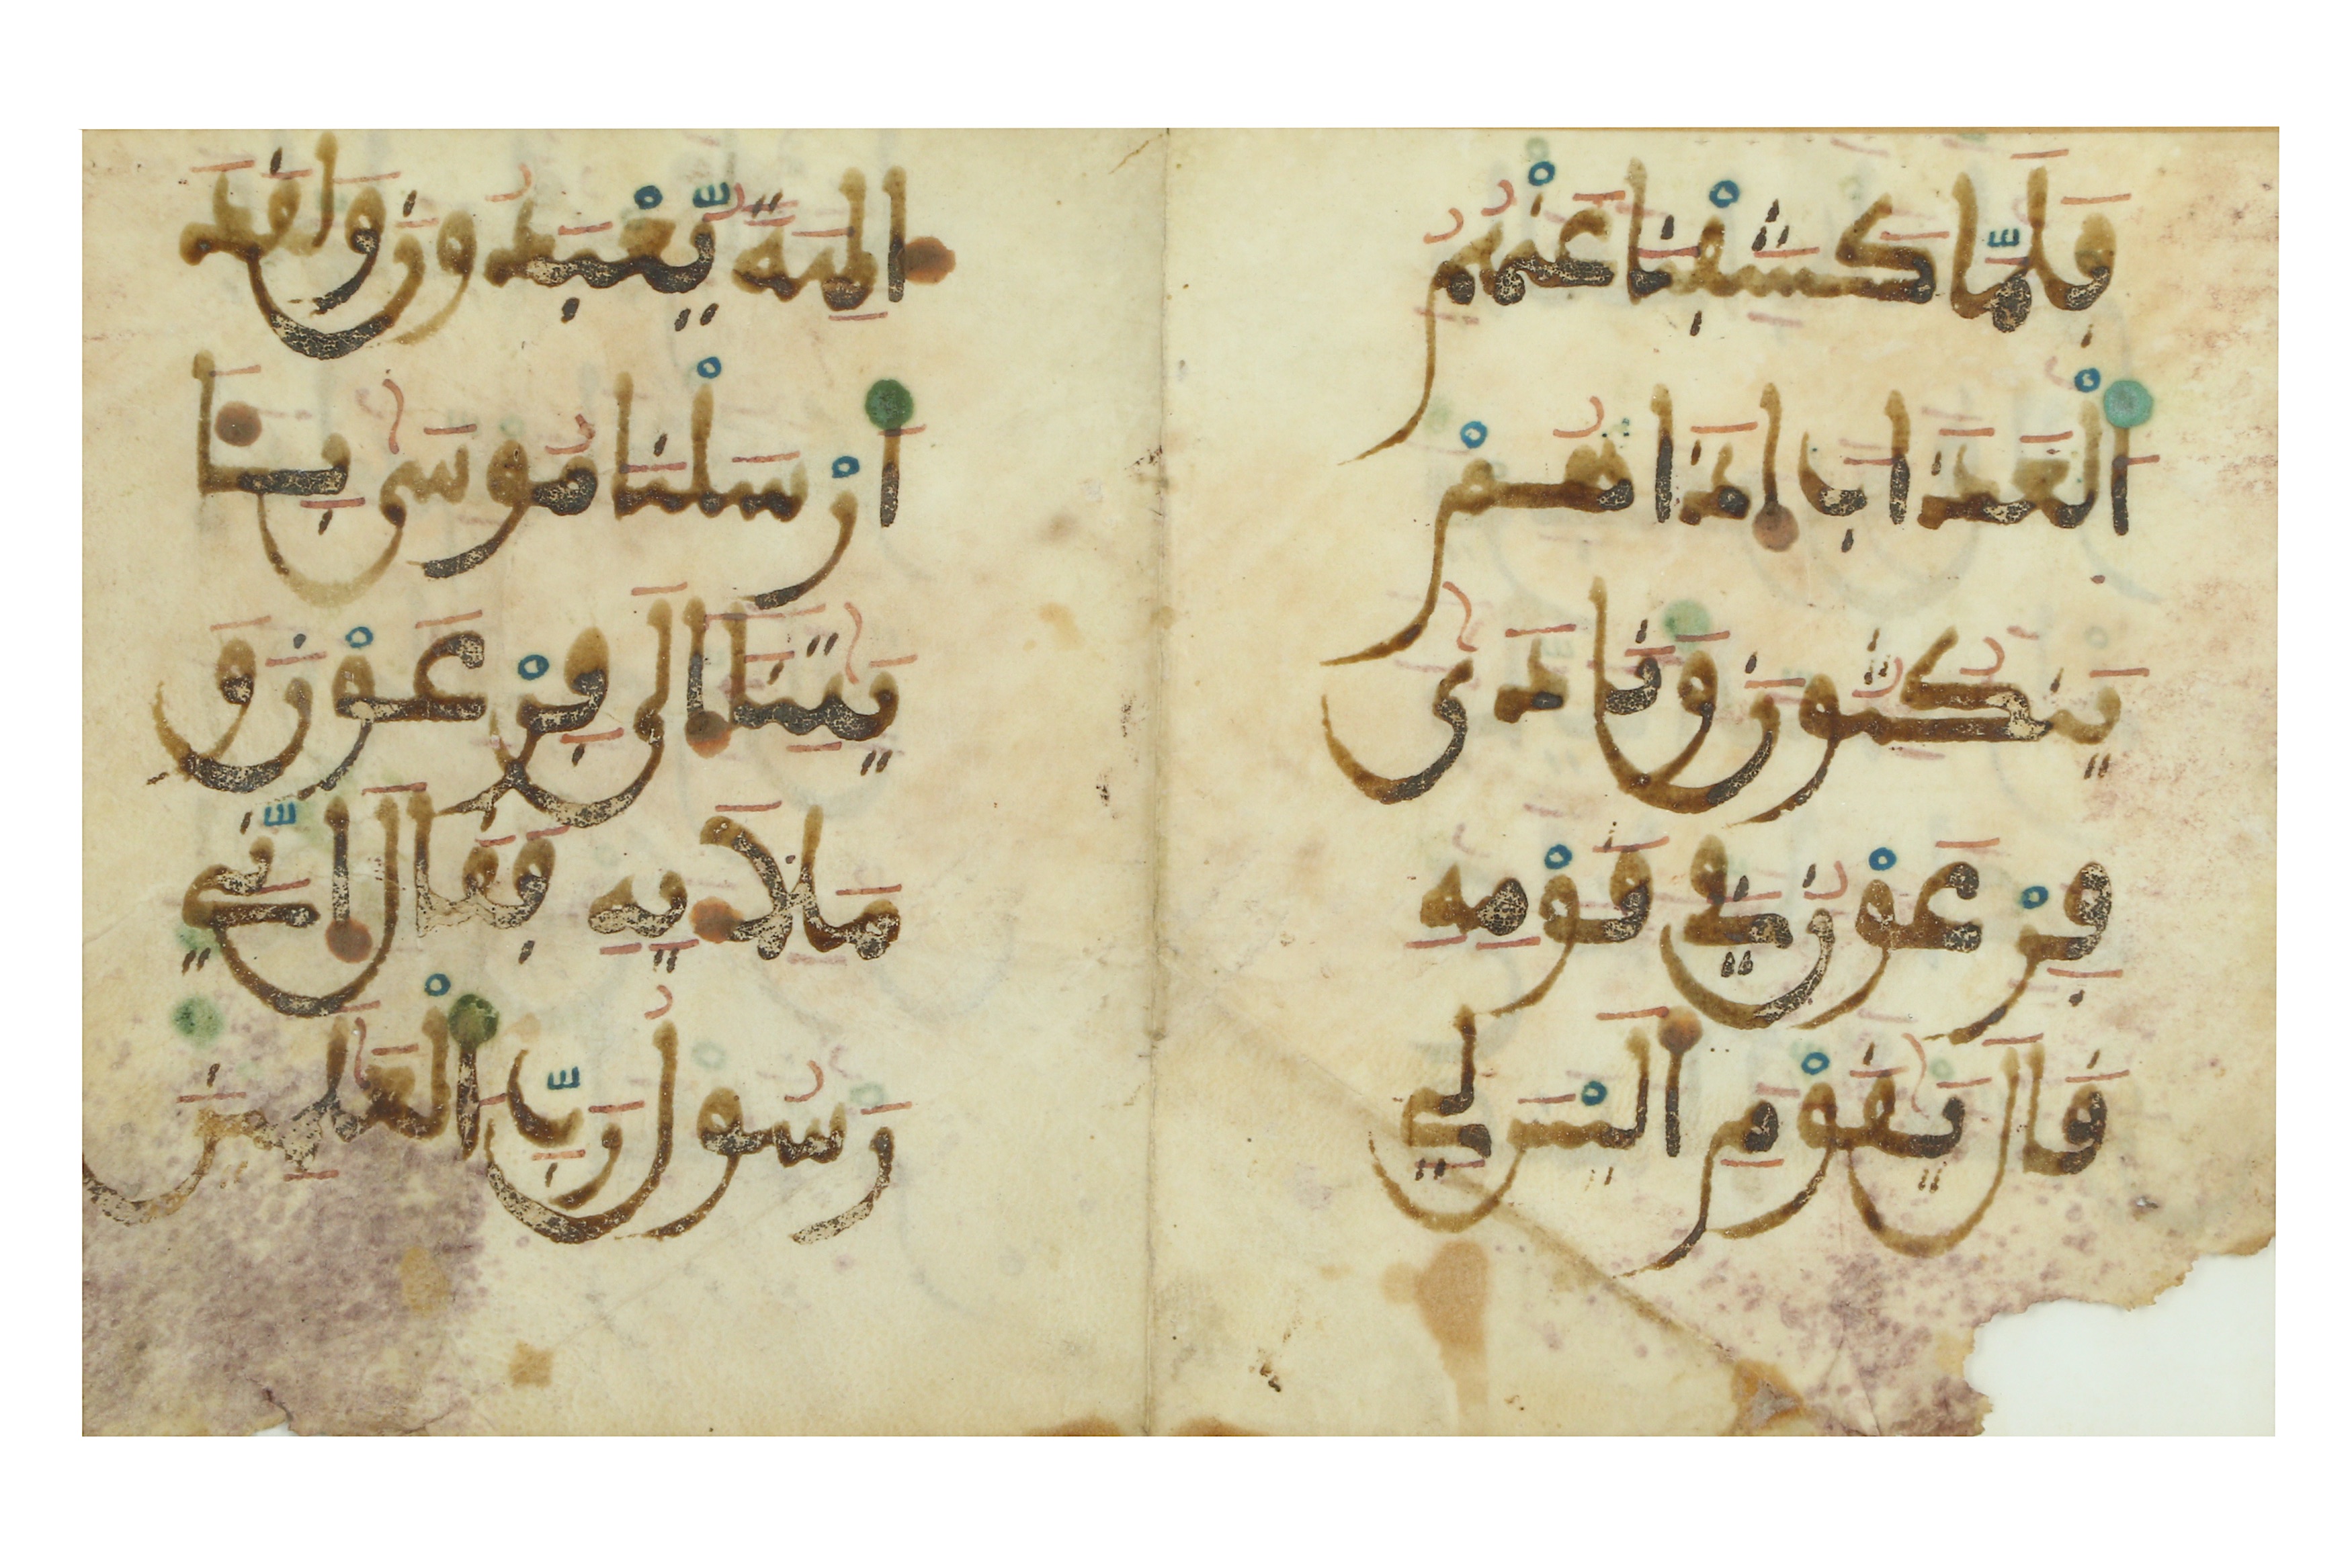 فَلَمَّا كَشَفْنَا عَنْهُمُ
الْعَذَابَ إِذَا هُمْ
يَنكُثُونَ وَنَادَىٰ
فِرْعَوْنُ فِي قَوْمِهِ
قَالَ يَٰقَوْمِ أَلَيْسَ لِي
ءَالِهَةً يُعْبَدُونَ وَلَقَدْ
أَرْسَلْنَا مُوسَىٰ بِـَٔا
يَٰتِنَا إِلَىٰ فِرْعَوْنَ وَ
مَلَإِيْهِ فَقَالَ إِنِّي
رَسُولُ رَبِّ الْعَٰلَمِينَ